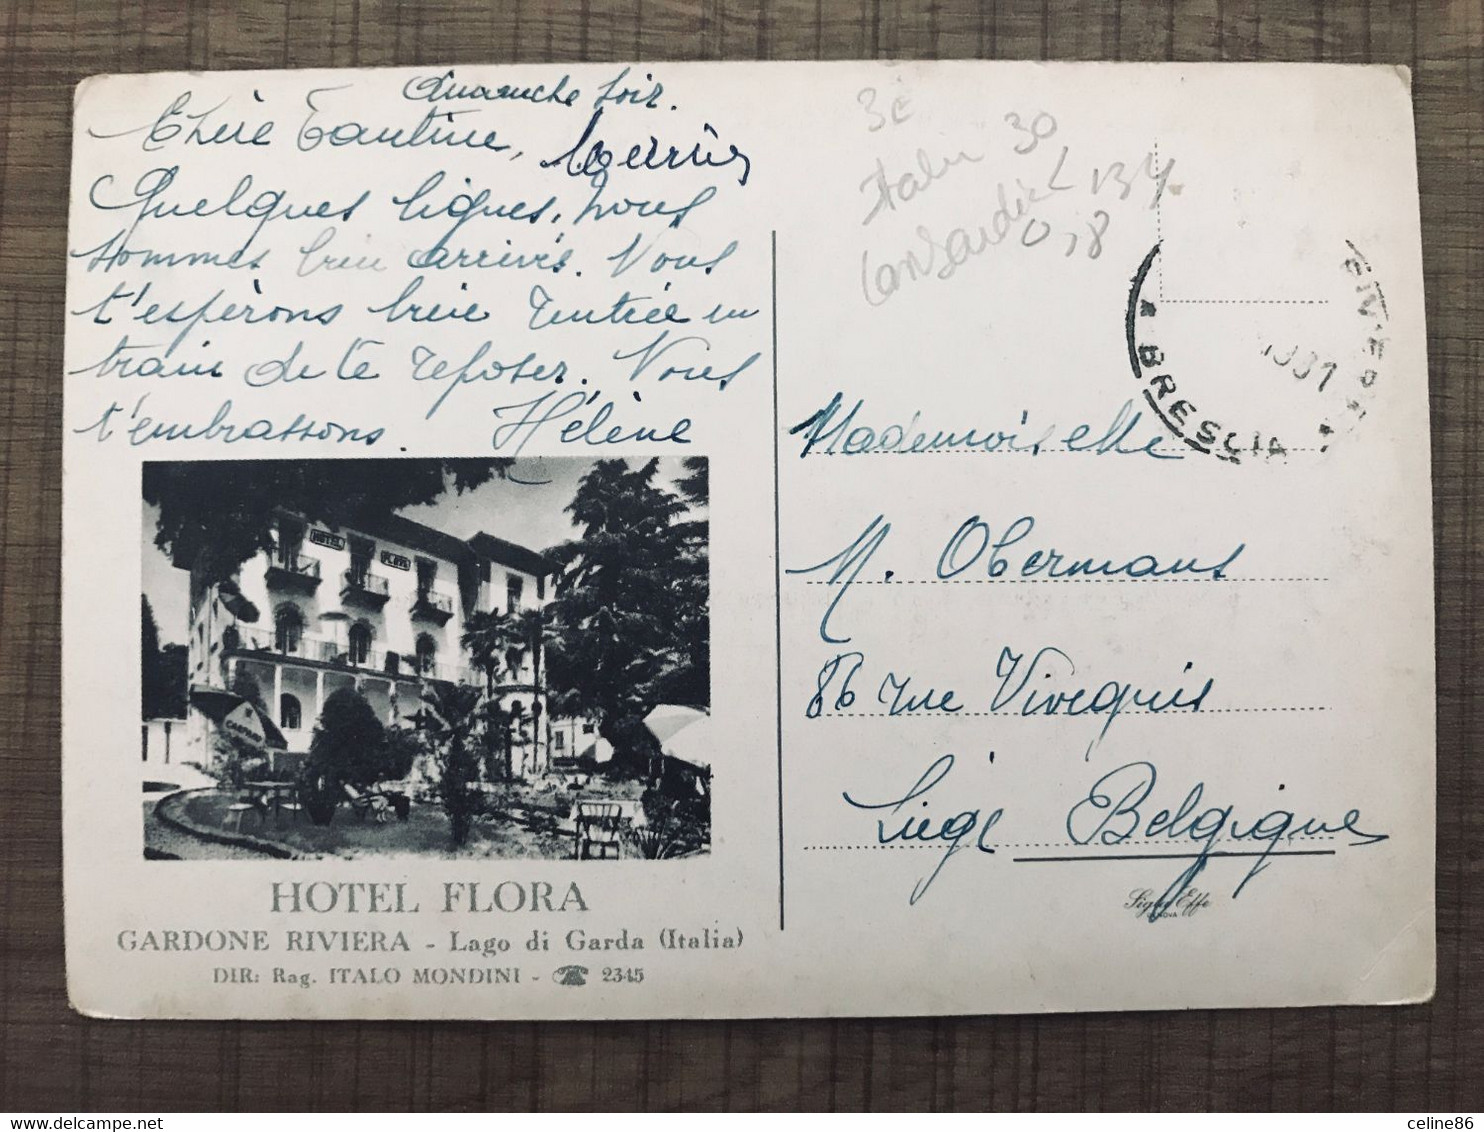 Dimanche soir.
Chère Tantine,
Quelques lignes, nous
sommes bien arrivés. Nous
t'espérons bien rentrée en
train de te reposer. Nous
t'embrassons. Hélène
HOTEL FLORA
HOTEL FLORA
GARDONE RIVIERA - Lago di Garda (Italia)
DIR: Rag. ITALO MONDINI - ☎ 2345
3€
Italie 30
0,8
* BRESCIA *
Mademoiselle
M. Obermans
86 rue Vivegnis
Liège Belgique
celine86